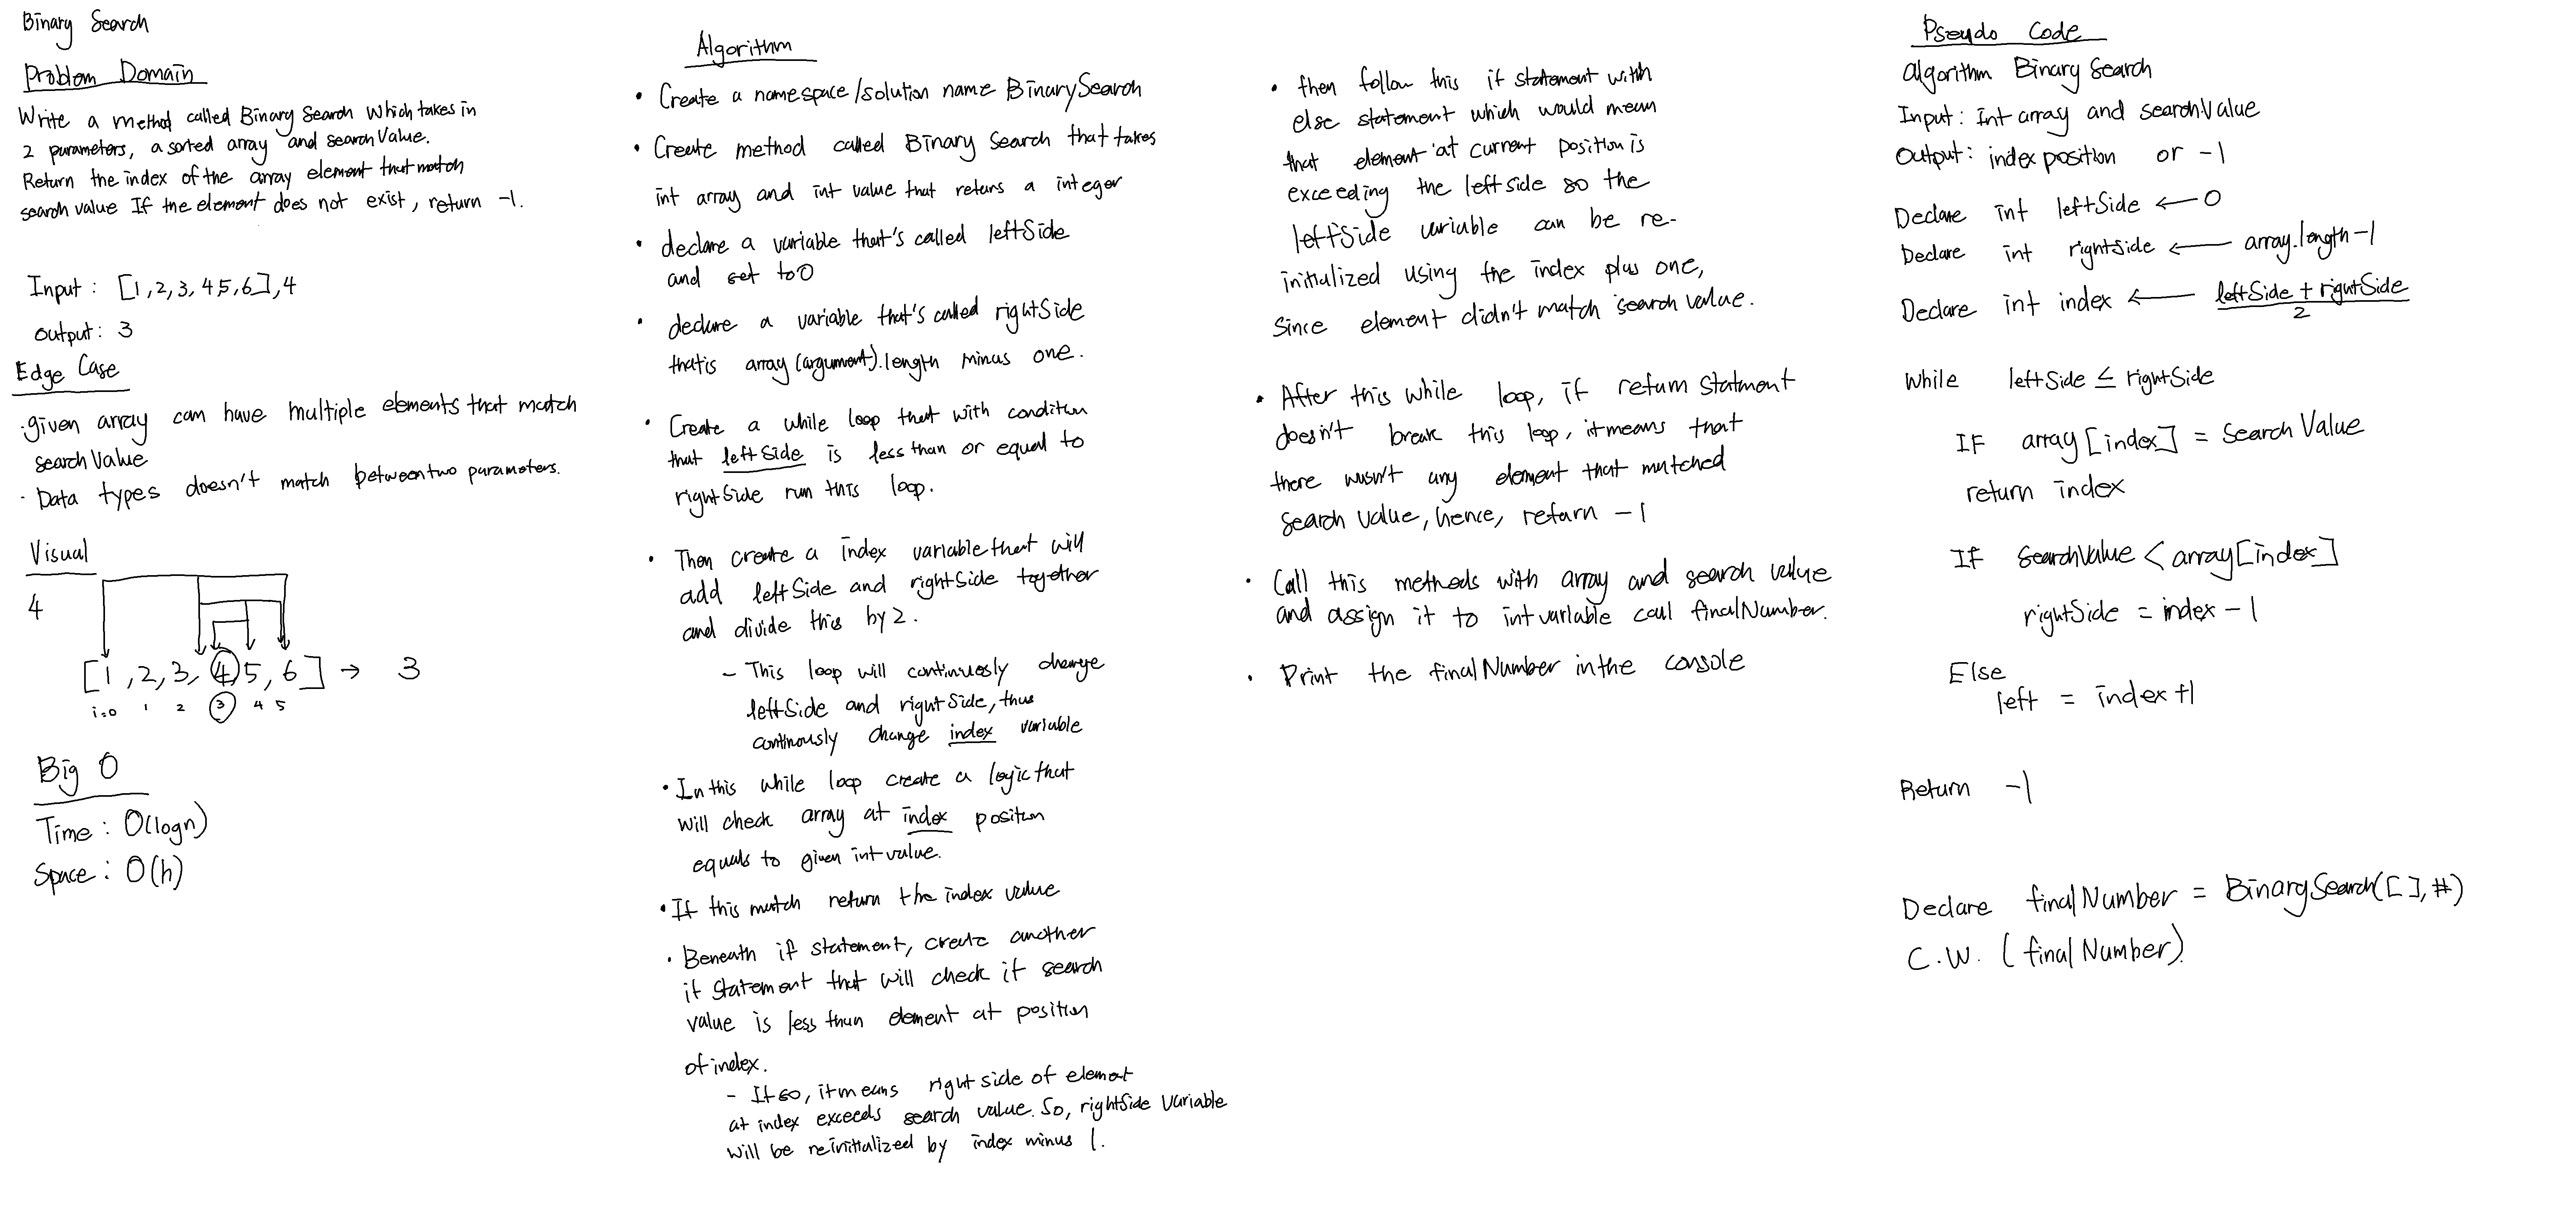 Binary Search
Problem Domain
Write a method called Binary Search which takes in
2 parameters, a sorted array and searchValue.
Return the index of the array element that match
search value If the element does not exist, return -1.
Input : [1,2,3,45,6],4
output: 3
Edge Case
· given array can have multiple elements that match
searchValue
· Data types doesn't match between two parameters.
Visual
4
[1,2,3,4)5,6] → 3
i=0 1 2 3 4 5
Big O
Time : O(logn)
Space : O(h)
Algorithm
• Create a namespace/solution name BinarySearch
• Create method called Binary Search that takes
int array and int value that returs a integer
• declare a variable that's called leftSide
and set to 0
• declare a variable that's called rightSide
that is array (argument).length minus one.
• Create a while loop that with condition
that leftSide is less than or equal to
rightSide run this loop.
• Then create a index variable that will
add leftSide and rightSide together
and divide this by 2.
- This loop will continuesly change
leftSide and rightSide, thus
continously change index variable
• In this while loop create a logic that
will check array at index position
equals to given int value.
• If this match return the index value
• Beneath if statement, create another
if statement that will check if search
value is less than element at position
of index.
- If so, it means right side of elemet
at index exceeds search value. So, rightSide variable
will be reinitialized by index minus 1.
• then follow this if statement with
else statement which would mean
that element at current position is
exceeding the left side so the
leftSide variable can be re-
initialized using the index plus one,
since element didn't match search value.
• After this while loop, if return statment
doesn't break this loop, it means that
there wasn't any element that matched
search value, hence, return -1
• Call this methods with array and search value
and assign it to int variable call finalNumber.
• Print the finalNumber in the console
Pseudo Code
algorithm Binary Search
Input : Int array and searchValue
Output : index position or -1
Declare int leftSide ← 0
Declare int rightSide ← array.length-1
Declare int index ← leftSide + rightSide
2
While leftSide ≤ rightSide
IF array[index] = Search Value
return index
If searchValue < array[index]
rightSide = index - 1
Else
left = index+1
Return -1
Declare finalNumber = BinarySearch([ ], #)
C.W. (finalNumber)